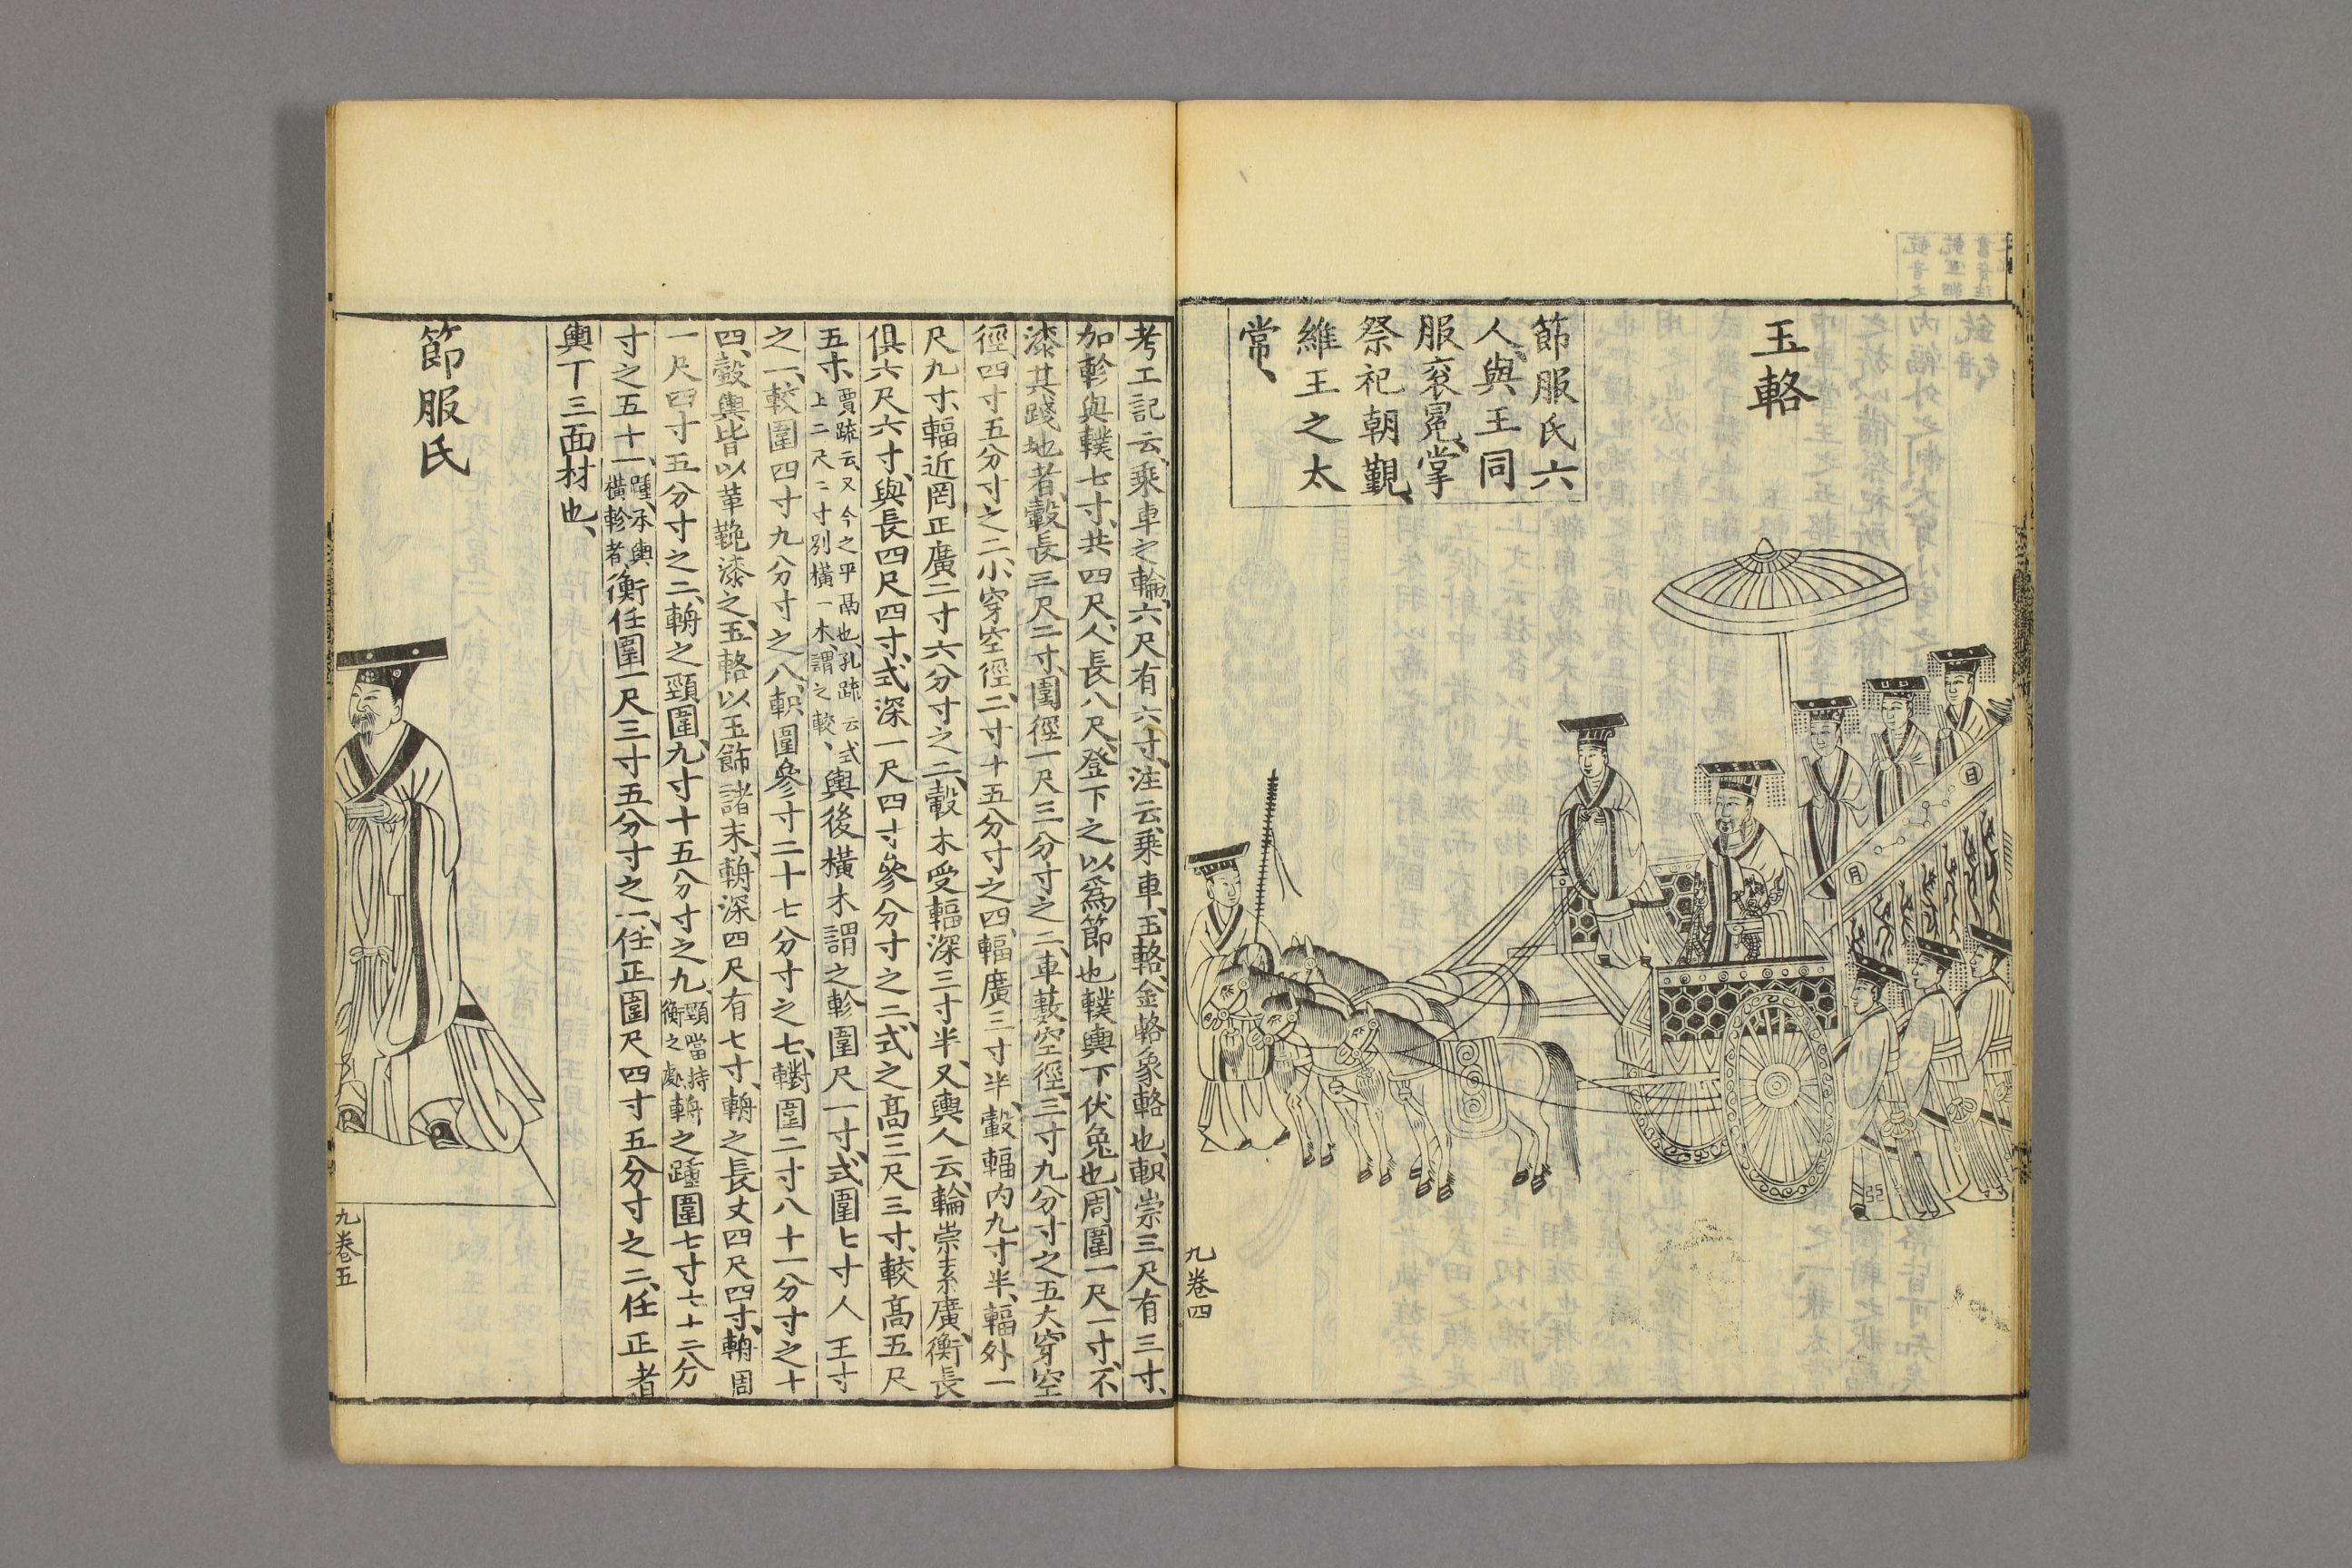 玉輅
節服氏六
人、與王同
服衮冕、掌
祭祀朝覲、
維王之太
常、
日
月
九卷四
考工記云、乘車之輪、六尺有六寸、注云乘車、玉輅、金輅象輅也、軹崇三尺有三寸、
加軫與轐七寸、共四尺、人長八尺、登下之以爲節也轐輿下伏兔也、周圍一尺一寸、不
漆其踐地者、轂長三尺二寸、圍徑一尺三分寸之二、車藪空徑、三寸九分寸之五大穿空
徑、四寸五分寸之二、小穿空徑、二寸十五分寸之四、輻廣三寸半、轂輻内九寸半、輻外一
尺九寸、輻近罔正廣二寸六分寸之二、轂木受輻深三寸半、又輿人云、輪崇素廣、衡長
俱六尺六寸、與長四尺四寸、式深一尺四寸參分寸之二、式之高三尺三寸、較高五尺
五寸、賈疏云、又今之平高也、孔疏云式
上二尺二寸別橫一木、謂之較、輿後橫木謂之軫圍尺一寸、式圍七寸人王寸
之一、較圍四寸九分寸之八、軹圍參寸二十七分寸之七、轛圍二寸八十一分寸之十
四、轂輿皆以革鞔漆之、玉輅以玉飾諸末、輈深四尺有七寸、輈之長丈四尺四寸、輈周
一尺四寸五分寸之二、輈之頸圍、九寸十五分寸之九、頸當持
衡之處、輈之踵圍七寸七十二分
寸之五十一、踵、承輿
橫軫者、衡任圍一尺三寸五分寸之一、任正圍尺四寸五分寸之二、任正者
輿丅三面材也、
節服氏
九卷五